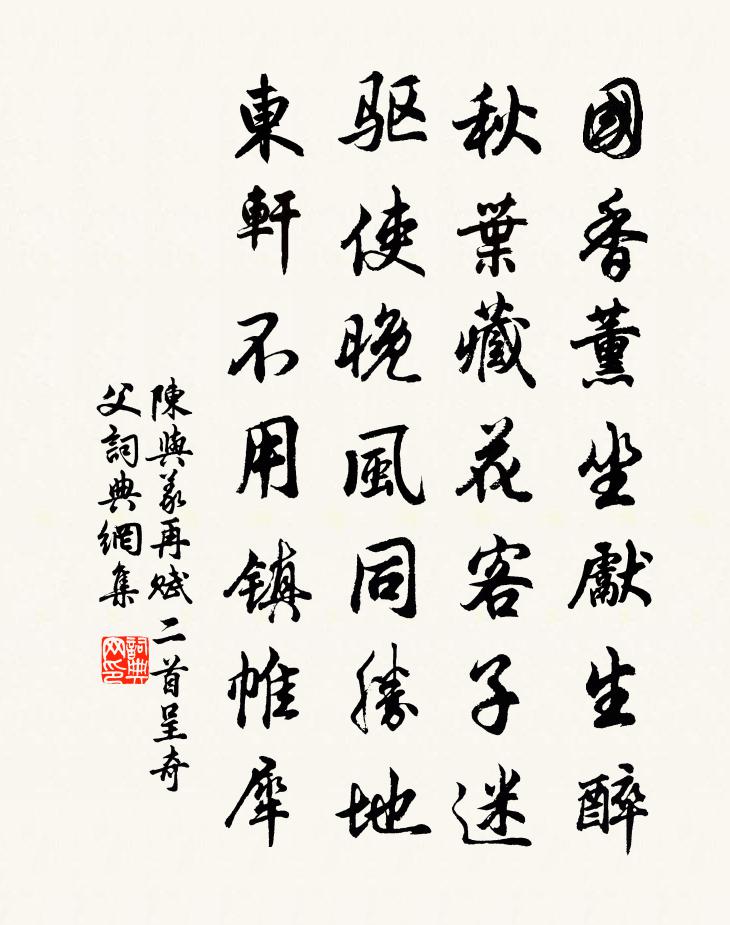 國香薰坐獻生醉
秋葉藏花客子迷
驱使晚風同勝地
東軒不用镇帷犀
陳與義再赋二首呈奇
父詞典網集
詞典网印